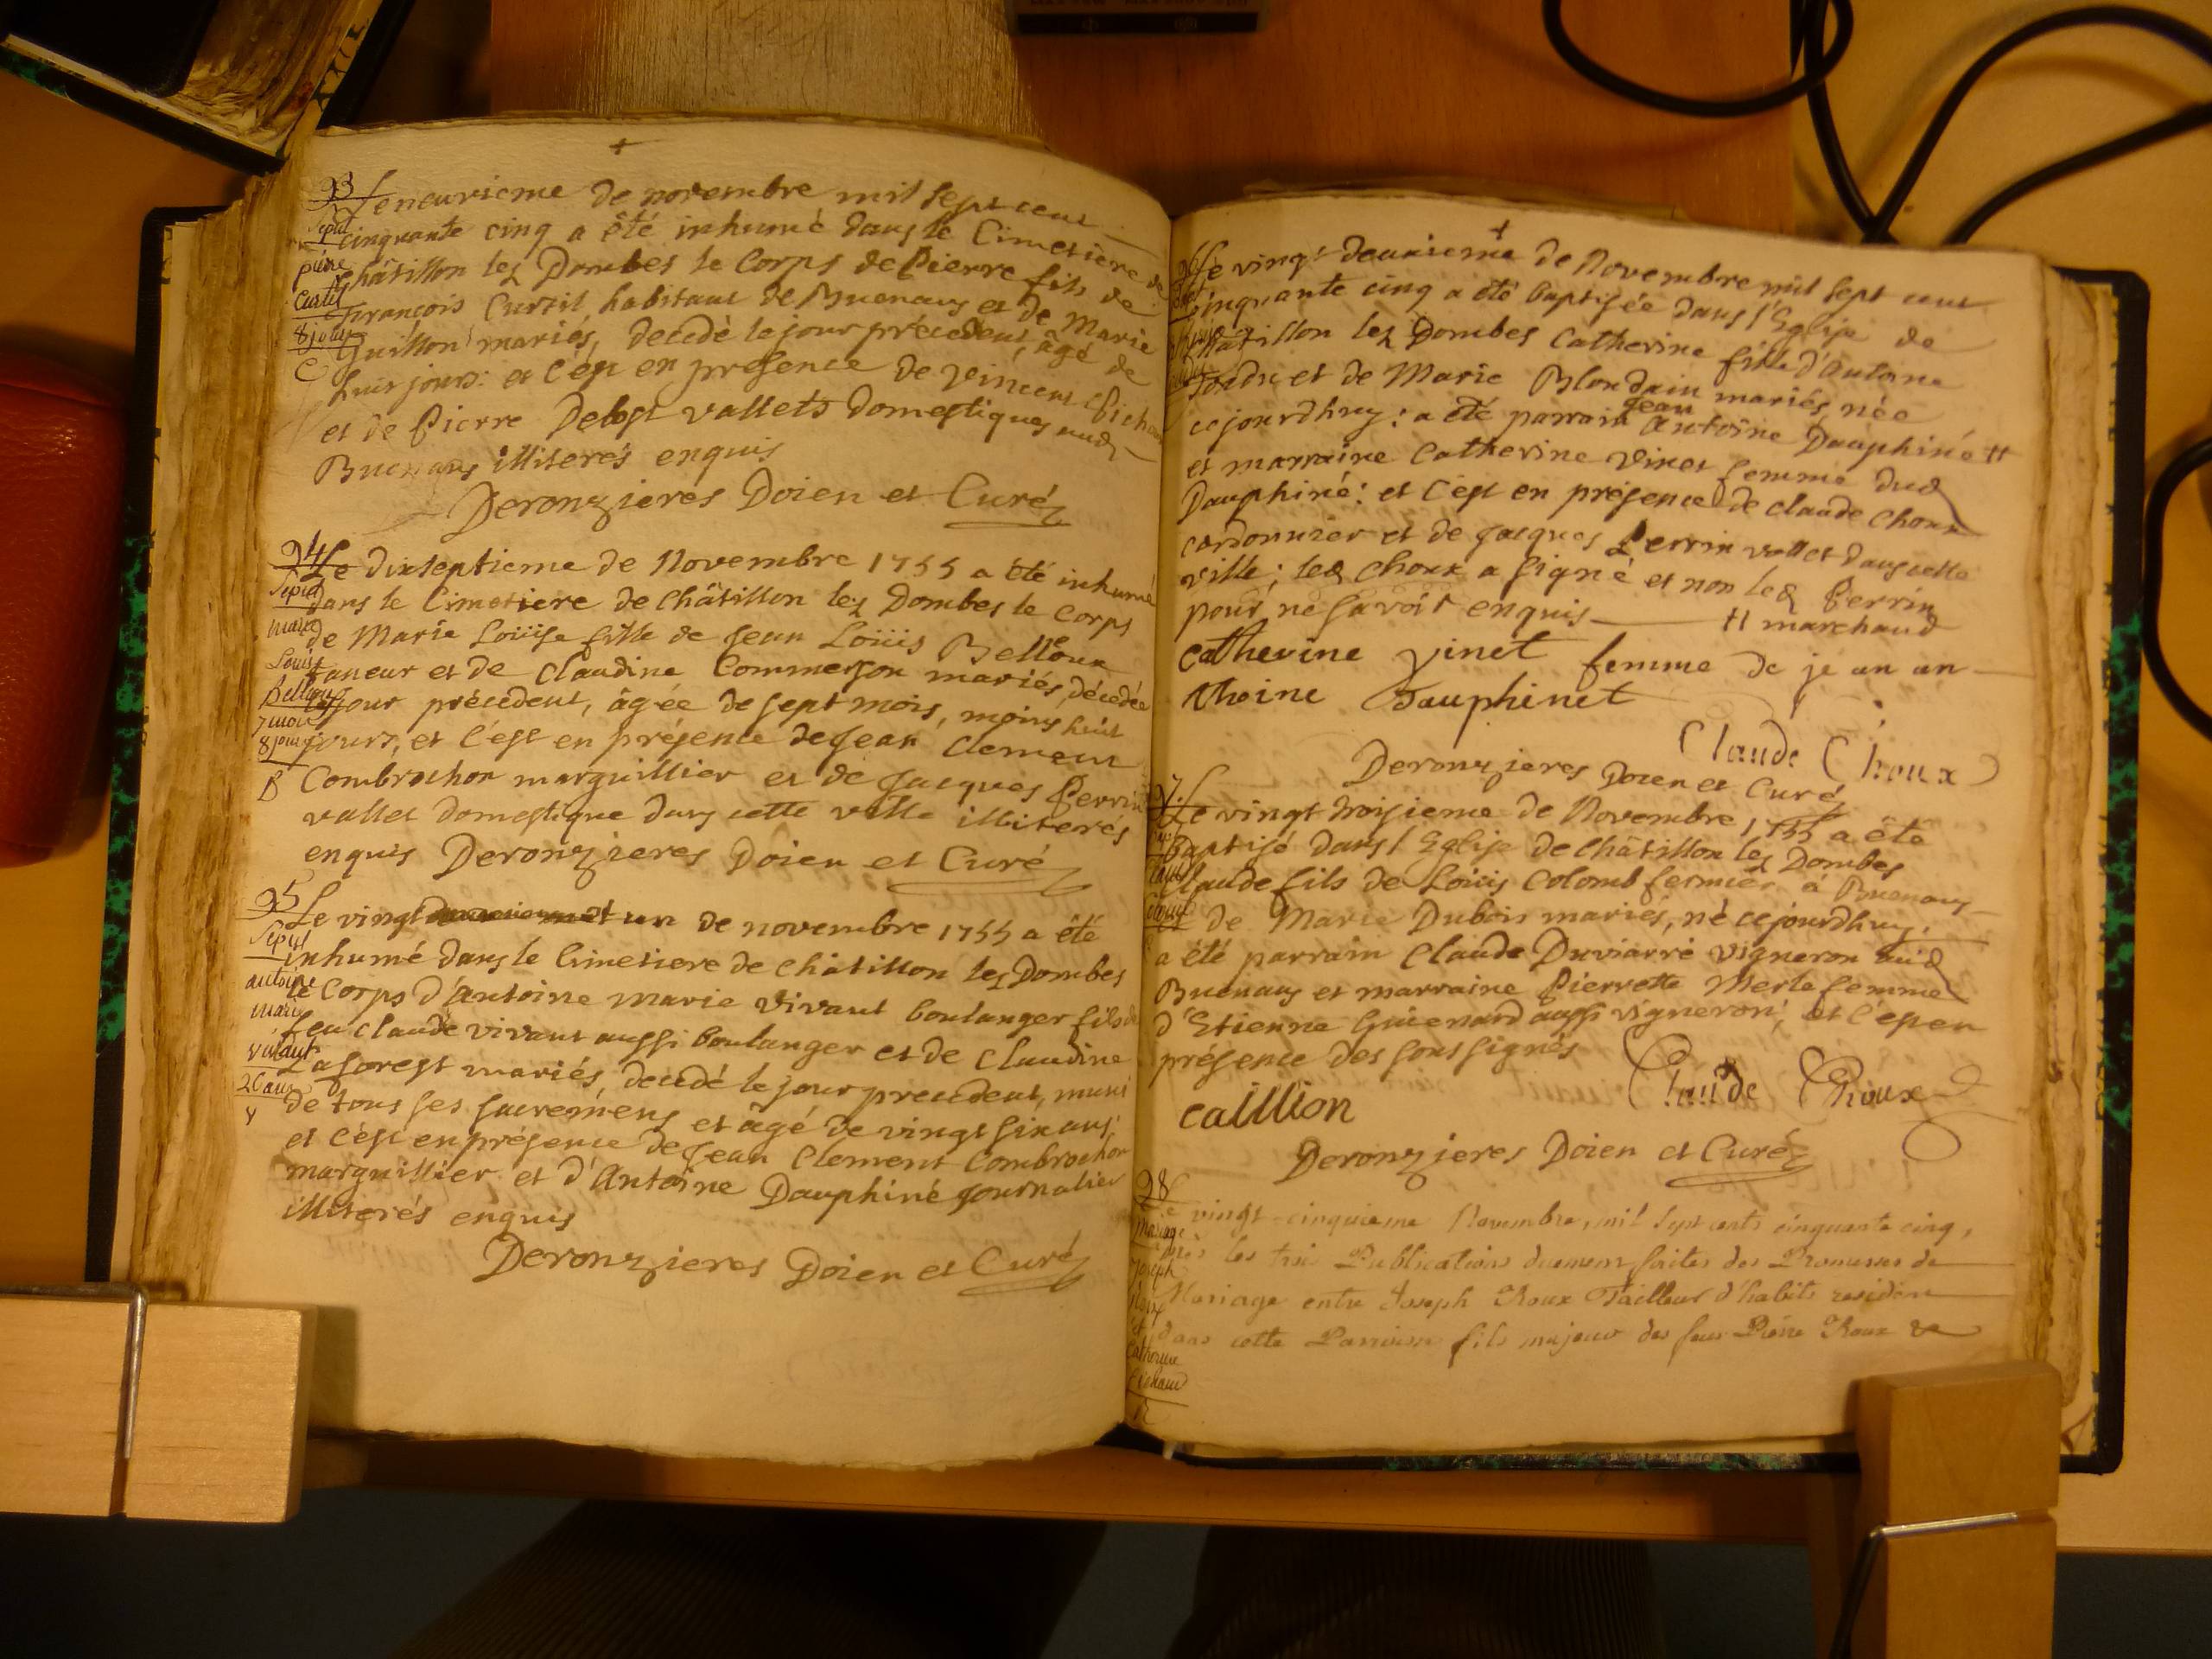 93
Sepul
pierre
Curtil
8 jours
C
Le neuvieme de novembre mil sept cent
cinquante cinq a été inhumé dans le Cimetiere de
Châtillon lez Dombes le Corps de Pierre fils de
François Curtil habitant de Buenans et de Marie
Guillon mariés, decedé le jour précedent, âgé de
huit jours: et c'est en présence de Vincent Pichon
et de Pierre Debost vallets domestiques aud
Buenans illiterés enquis
Deronzieres Doien et Curé
94
Sepul
marie
Louise
Belloux
7 mois
8 jours
B
Le dixseptieme de Novembre 1755 a été inhumé
dans le Cimetiere de Châtillon lez Dombes le Corps
de Marie Loüise fille de Jean Loüis Belloux
taneur et de Claudine Commerson mariés, décédée
le jour précedent, âgée de sept mois, moins huit
jours, et c'est en présence de Jean Clement
Combrochon marguillier et de Jacques Perrin
vallet domestique dans cette ville illiterés
enquis Deronzieres Doien et Curé
95
Sepul
antoine
marie
vivant
26 ans
V
Le vingt et un de novembre 1755 a été
inhumé dans le Cimetiere de Châtillon lez Dombes
le Corps d'Antoine marie Vivant boulanger fils de
feu Claude vivant aussi boulanger et de Claudine
Laforest mariés, decedé le jour precedent, muni
de tous ses sacremens et âgé de vingt six ans:
et c'est en présence de Jean Clement Combrochon
marguillier et d'Antoine Dauphiné Journalier
illiterés enquis
Deronzieres Doien et Curé
96
Le vingt deuxieme de Novembre mil sept cent
cinquante cinq a été baptisée dans l'Eglise de
Châtillon lez Dombes Catherine fille d'Antoine
et de Marie Blondain mariés, née
cejourdhuy: a été parrain Jean Antoine Dauphiné #
et marraine Catherine Vinet femme dud
Dauphiné: et c'est en présence de Claude Choux
cordonnier et de Jacques Perrin vallet dans cette
ville; led Choux a signé et non led Perrin
pour ne savoir enquis # marchand
catherine vinet femme de je an an
thoine Dauphinet
Claude Choux
Deronzieres Doien et Curé
97
Le vingt troisieme de Novembre 1755 a été
Baptisé dans l'Eglise de Châtillon lez Dombes
Claude fils de Loüis Colomb fermier à Buenans
et de Marie Dubois mariés, né cejourdhuy.
a été parrain Claude Duviarre vigneron aud
Buenans et marraine Pierrette Merle femme
d'Etienne Guienard aussi vigneron, et c'est en
présence des soussignés
Claude Choux
caillion
Deronzieres Doien et Curé
98
mariage
Joseph
Roux
et
Catherine
Le vingt-cinquieme Novembre, mil sept cents cinquante cinq,
après les trois Publications duement faites des Promesses de
Mariage entre Joseph Roux Tailleur d'habits residant
dans cette Parroisse fils majeur des feus Pierre Roux &